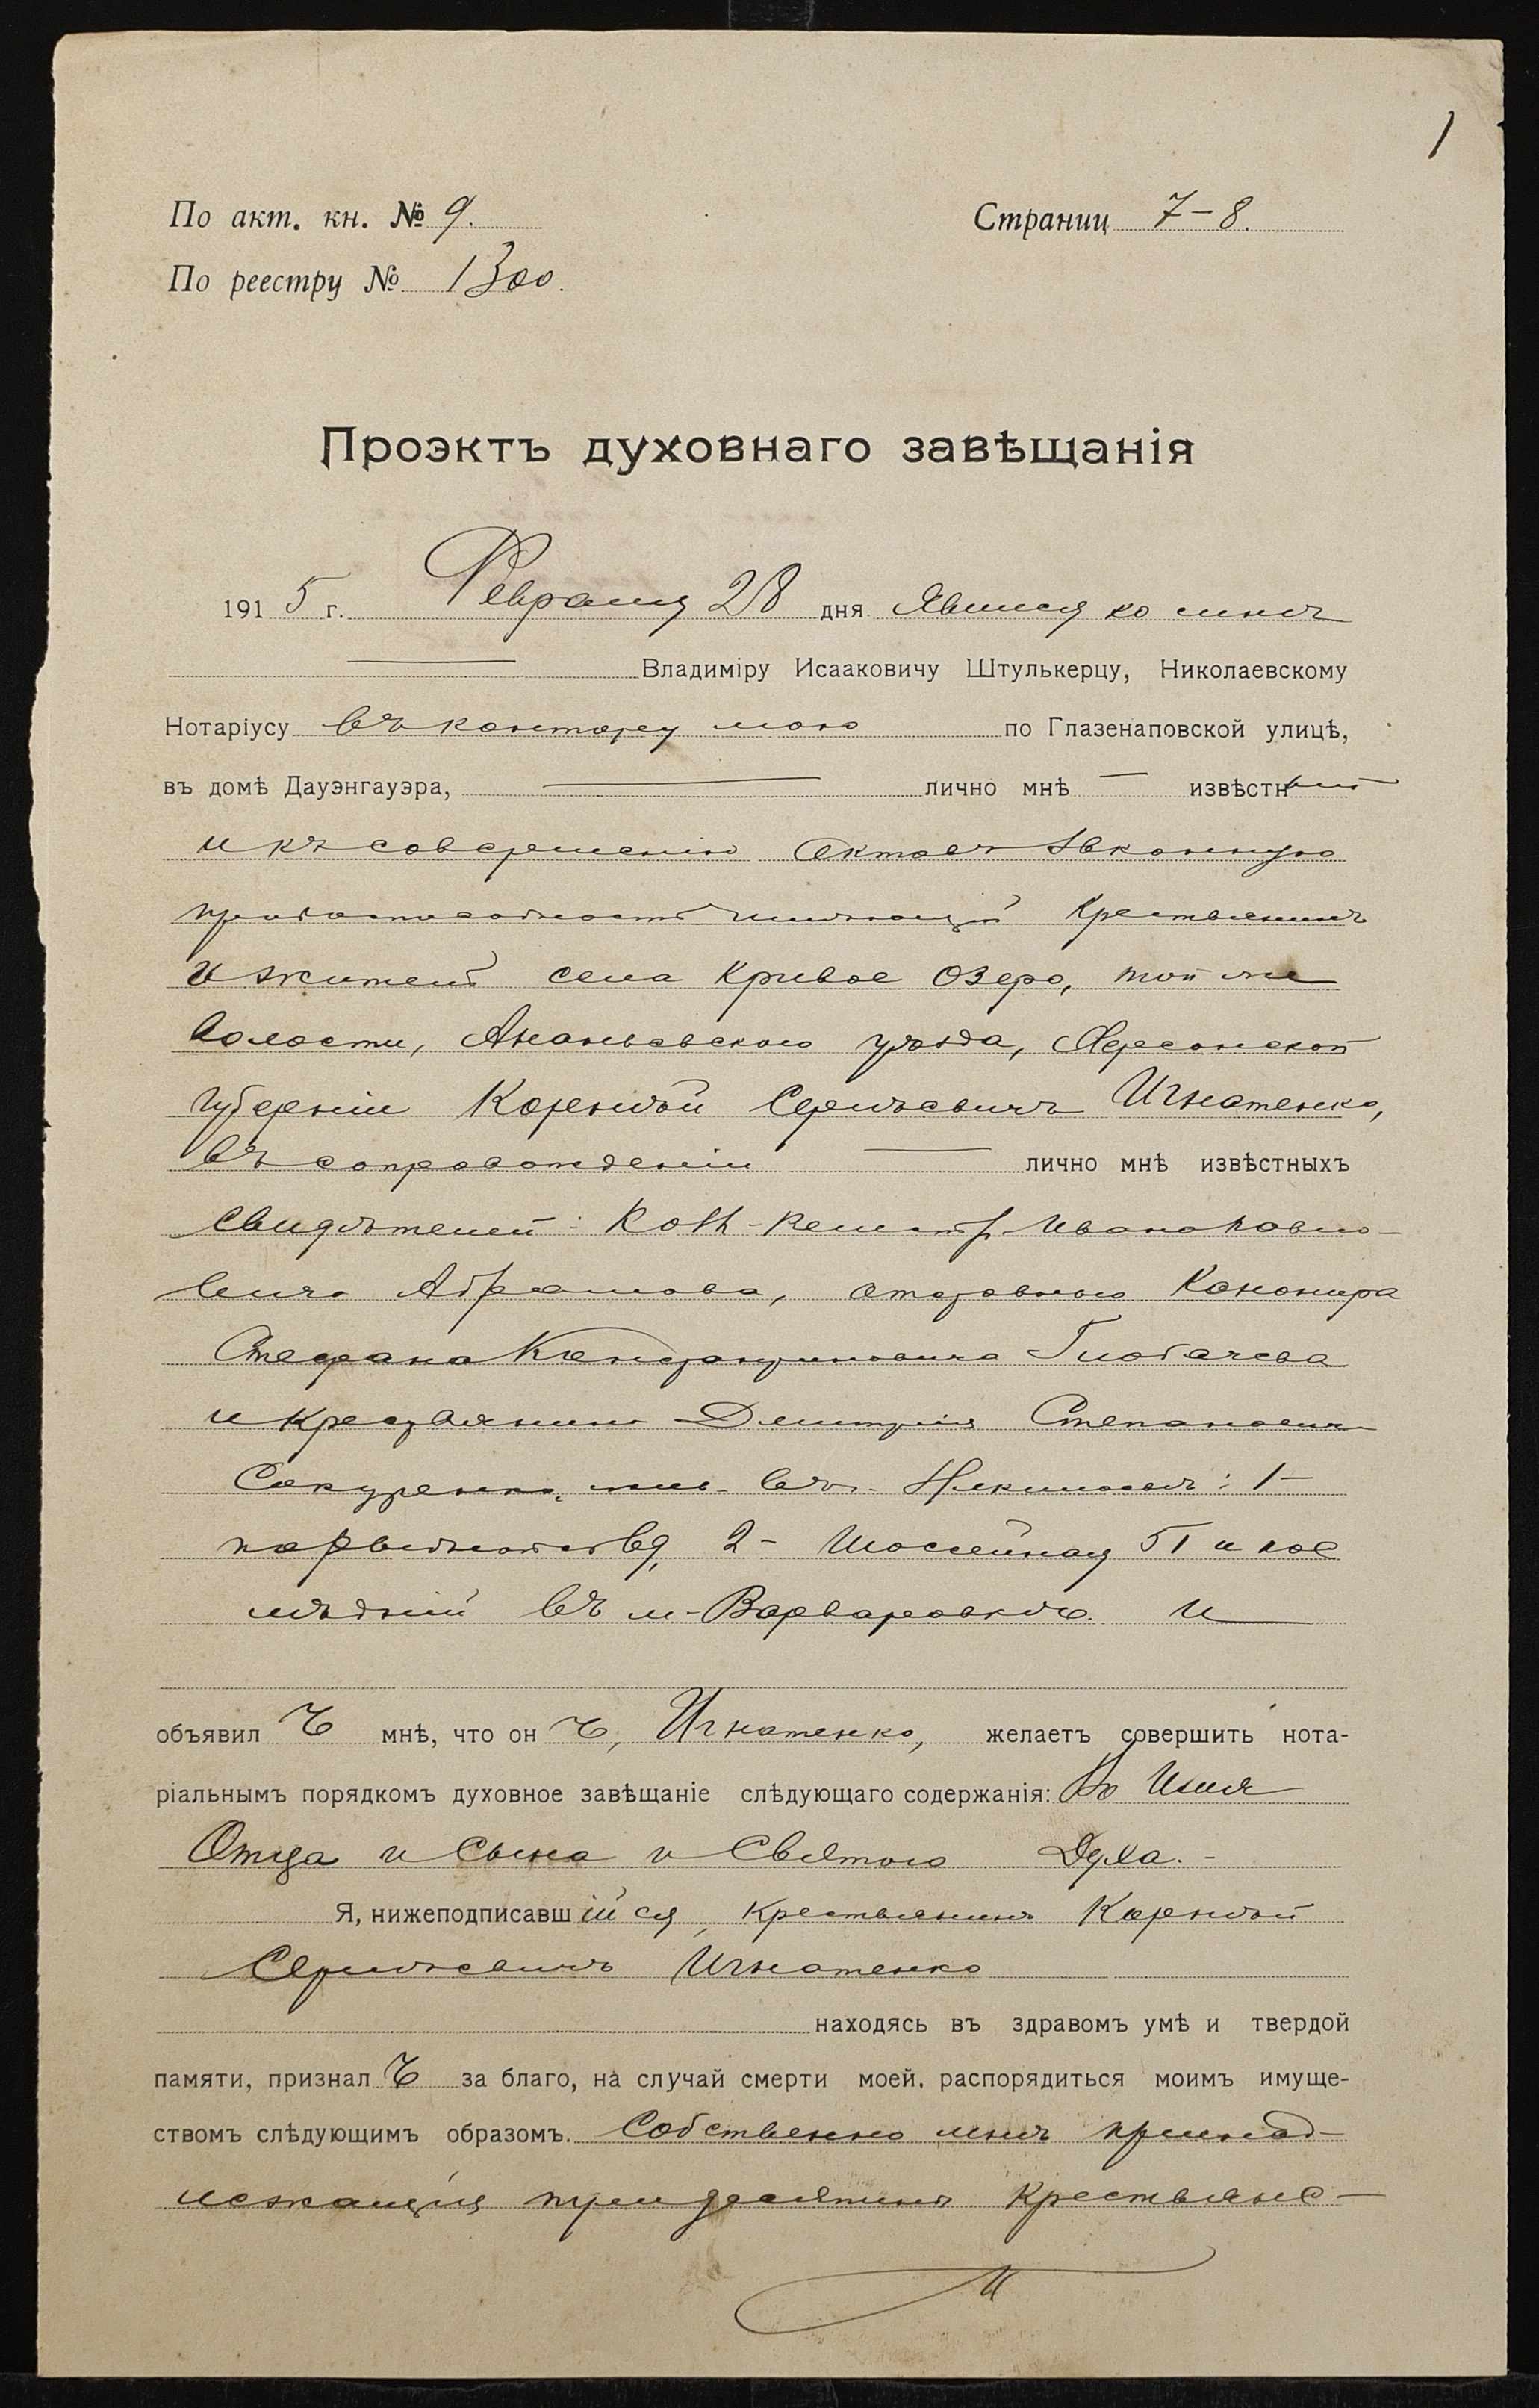 1
По акт. кн. № 9. Страниц 7-8.
По реестру № 1300.
Проэктъ духовнаго завѣщанія
1915 г. Февраля 28 дня явился ко мнѣ
Владиміру Исааковичу Штулькерцу, Николаевскому
Нотаріусу въ контору мою по Глазенаповской улицѣ,
въ домѣ Дауэнгауэра, лично мнѣ извѣстный
и къ совершенію актовъ законную
правоспособность имѣющій крестьянинъ
и житель села Кривое Озеро, той же
волости, Ананьевскаго уѣзда, Херсонской
губерніи Корнѣй Сергѣевичъ Игнатенко,
въ сопровожденіи лично мнѣ извѣстныхъ
свидѣтелей: Колл-Регистр Ивана Павло-
вича Абрамова, отставного Канонира
Стефана Глобачева
и крестьянина Димитрія Степановича
Сакуренко, жив. въ г. Николаевѣ: 1-
2- Шоссейная 51 и пос
лѣдній въ м-Варваровкѣ и
объявилъ мнѣ, что онъ, Игнатенко, желаетъ совершить нота-
ріальнымъ порядкомъ духовное завѣщаніе слѣдующаго содержанія: Во Имя
Отца и Сына и Святого Духа.-
Я, нижеподписавшійся, крестьянинъ Корнѣй
Сергѣевичъ Игнатенко
находясь въ здравомъ умѣ и твердой
памяти, призналъ за благо, на случай смерти моей, распорядиться моимъ имуще-
ствомъ слѣдующимъ образомъ. Собственно мнѣ принад-
лежащія три десятины крестьянс-